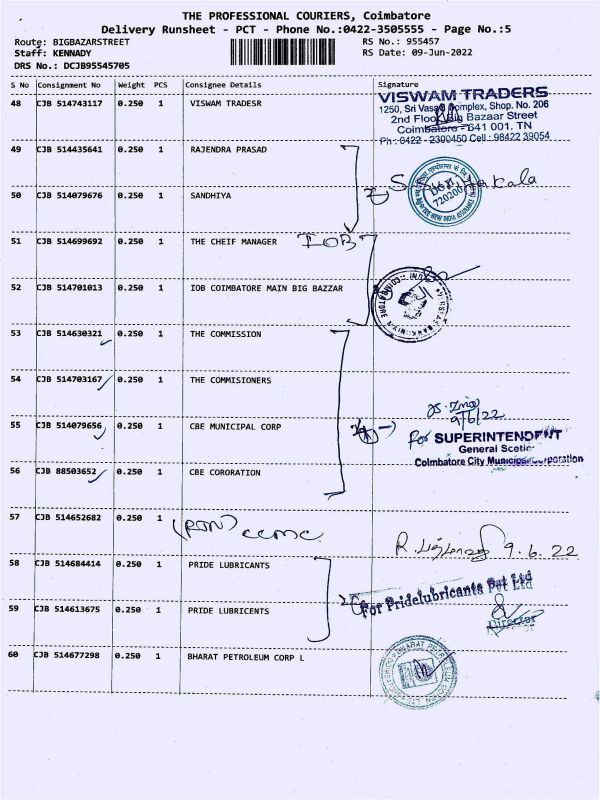 THE PROFESSIONAL COURIERS, Coimbatore
Delivery Runsheet - PCT - Phone No.:0422-3505555 - Page No.:5
Route: BIGBAZARSTREET RS No.: 955457
Staff: KENNADY RS Date: 09-Jun-2022
DRS No.: DCJB95545705
S No Consignment No Weight PCS Consignee Details Signature
48 CJB 514743117 0.250 1 VISWAM TRADESR
VISWAM TRADERS
1250, Sri Vasa Complex, Shop. No. 206
2nd Floor, Big Bazaar Street
Coimbatore - 641 001. TN
Ph : 0422 - 2300450 Cell : 98422 39054
49 CJB 514435641 0.250 1 RAJENDRA PRASAD
50 CJB 514079676 0.250 1 SANDHIYA
720200
51 CJB 514699692 0.250 1 THE CHEIF MANAGER IOB
52 CJB 514701013 0.250 1 IOB COIMBATORE MAIN BIG BAZZAR
53 CJB 514630321 0.250 1 THE COMMISSION
54 CJB 514703167 0.250 1 THE COMMISIONERS
9/6/22
55 CJB 514079656 0.250 1 CBE MUNICIPAL CORP
for SUPERINTENDENT
General Scetic
Coimbatore City Municipal Corporation
56 CJB 88503652 0.250 1 CBE CORORATION
57 CJB 514652682 0.250 1 CCMC
R. 9.6.22
58 CJB 514684414 0.250 1 PRIDE LUBRICANTS
For Pridelubricants Pvt Ltd
59 CJB 514613675 0.250 1 PRIDE LUBRICENTS
Director
60 CJB 514677298 0.250 1 BHARAT PETROLEUM CORP L